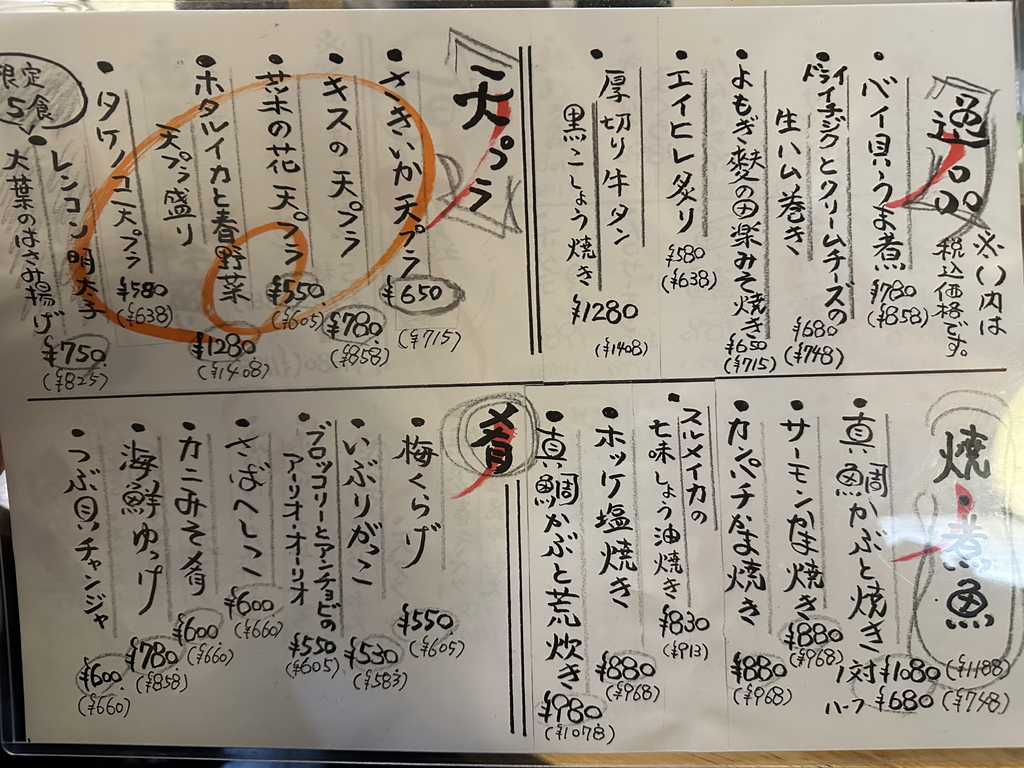 逸品
※()内は
税込価格です。
・バイ貝うま煮 ¥780
(¥858)
・ドライイチジクとクリームチーズの
生ハム巻き ¥680
(¥748)
・よもぎ麸の田楽みそ焼き ¥650
(¥715)
・エイヒレ炙り ¥580
(¥638)
・厚切り牛タン
黒こしょう焼き ¥1280
(¥1408)
天プラ
・さきいか天プラ ¥650
(¥715)
・キスの天プラ ¥780
(¥858)
・の花天プラ ¥550
(¥605)
・ホタルイカと春野菜
天プラ盛り ¥1280
(¥1408)
・タケノコ天プラ ¥580
(¥638)
限定
5食
・レンコン明太子
大葉のはさみ揚げ ¥750
(¥825)
焼・煮魚
・真鯛かぶと焼き 1対 ¥1080 (¥1188)
ハーフ ¥680 (¥748)
・サーモンかま焼き ¥880
(¥968)
・カンパチかま焼き ¥880
(¥968)
・スルメイカの
七味しょう油焼き ¥830
(¥913)
・ホッケ塩焼き ¥880
(¥968)
・真鯛かぶと荒炊き ¥980
(¥1078)
肴
・梅くらげ ¥550
(¥605)
・いぶりがっこ ¥530
(¥583)
・ブロッコリーとアンチョビの
アーリオ・オーリオ ¥550
(¥605)
・さばへしこ ¥600
(¥660)
・カニみそ肴 ¥600
(¥660)
・海鮮ゆっけ ¥780
(¥858)
・つぶ貝チャンジャ ¥600
(¥660)